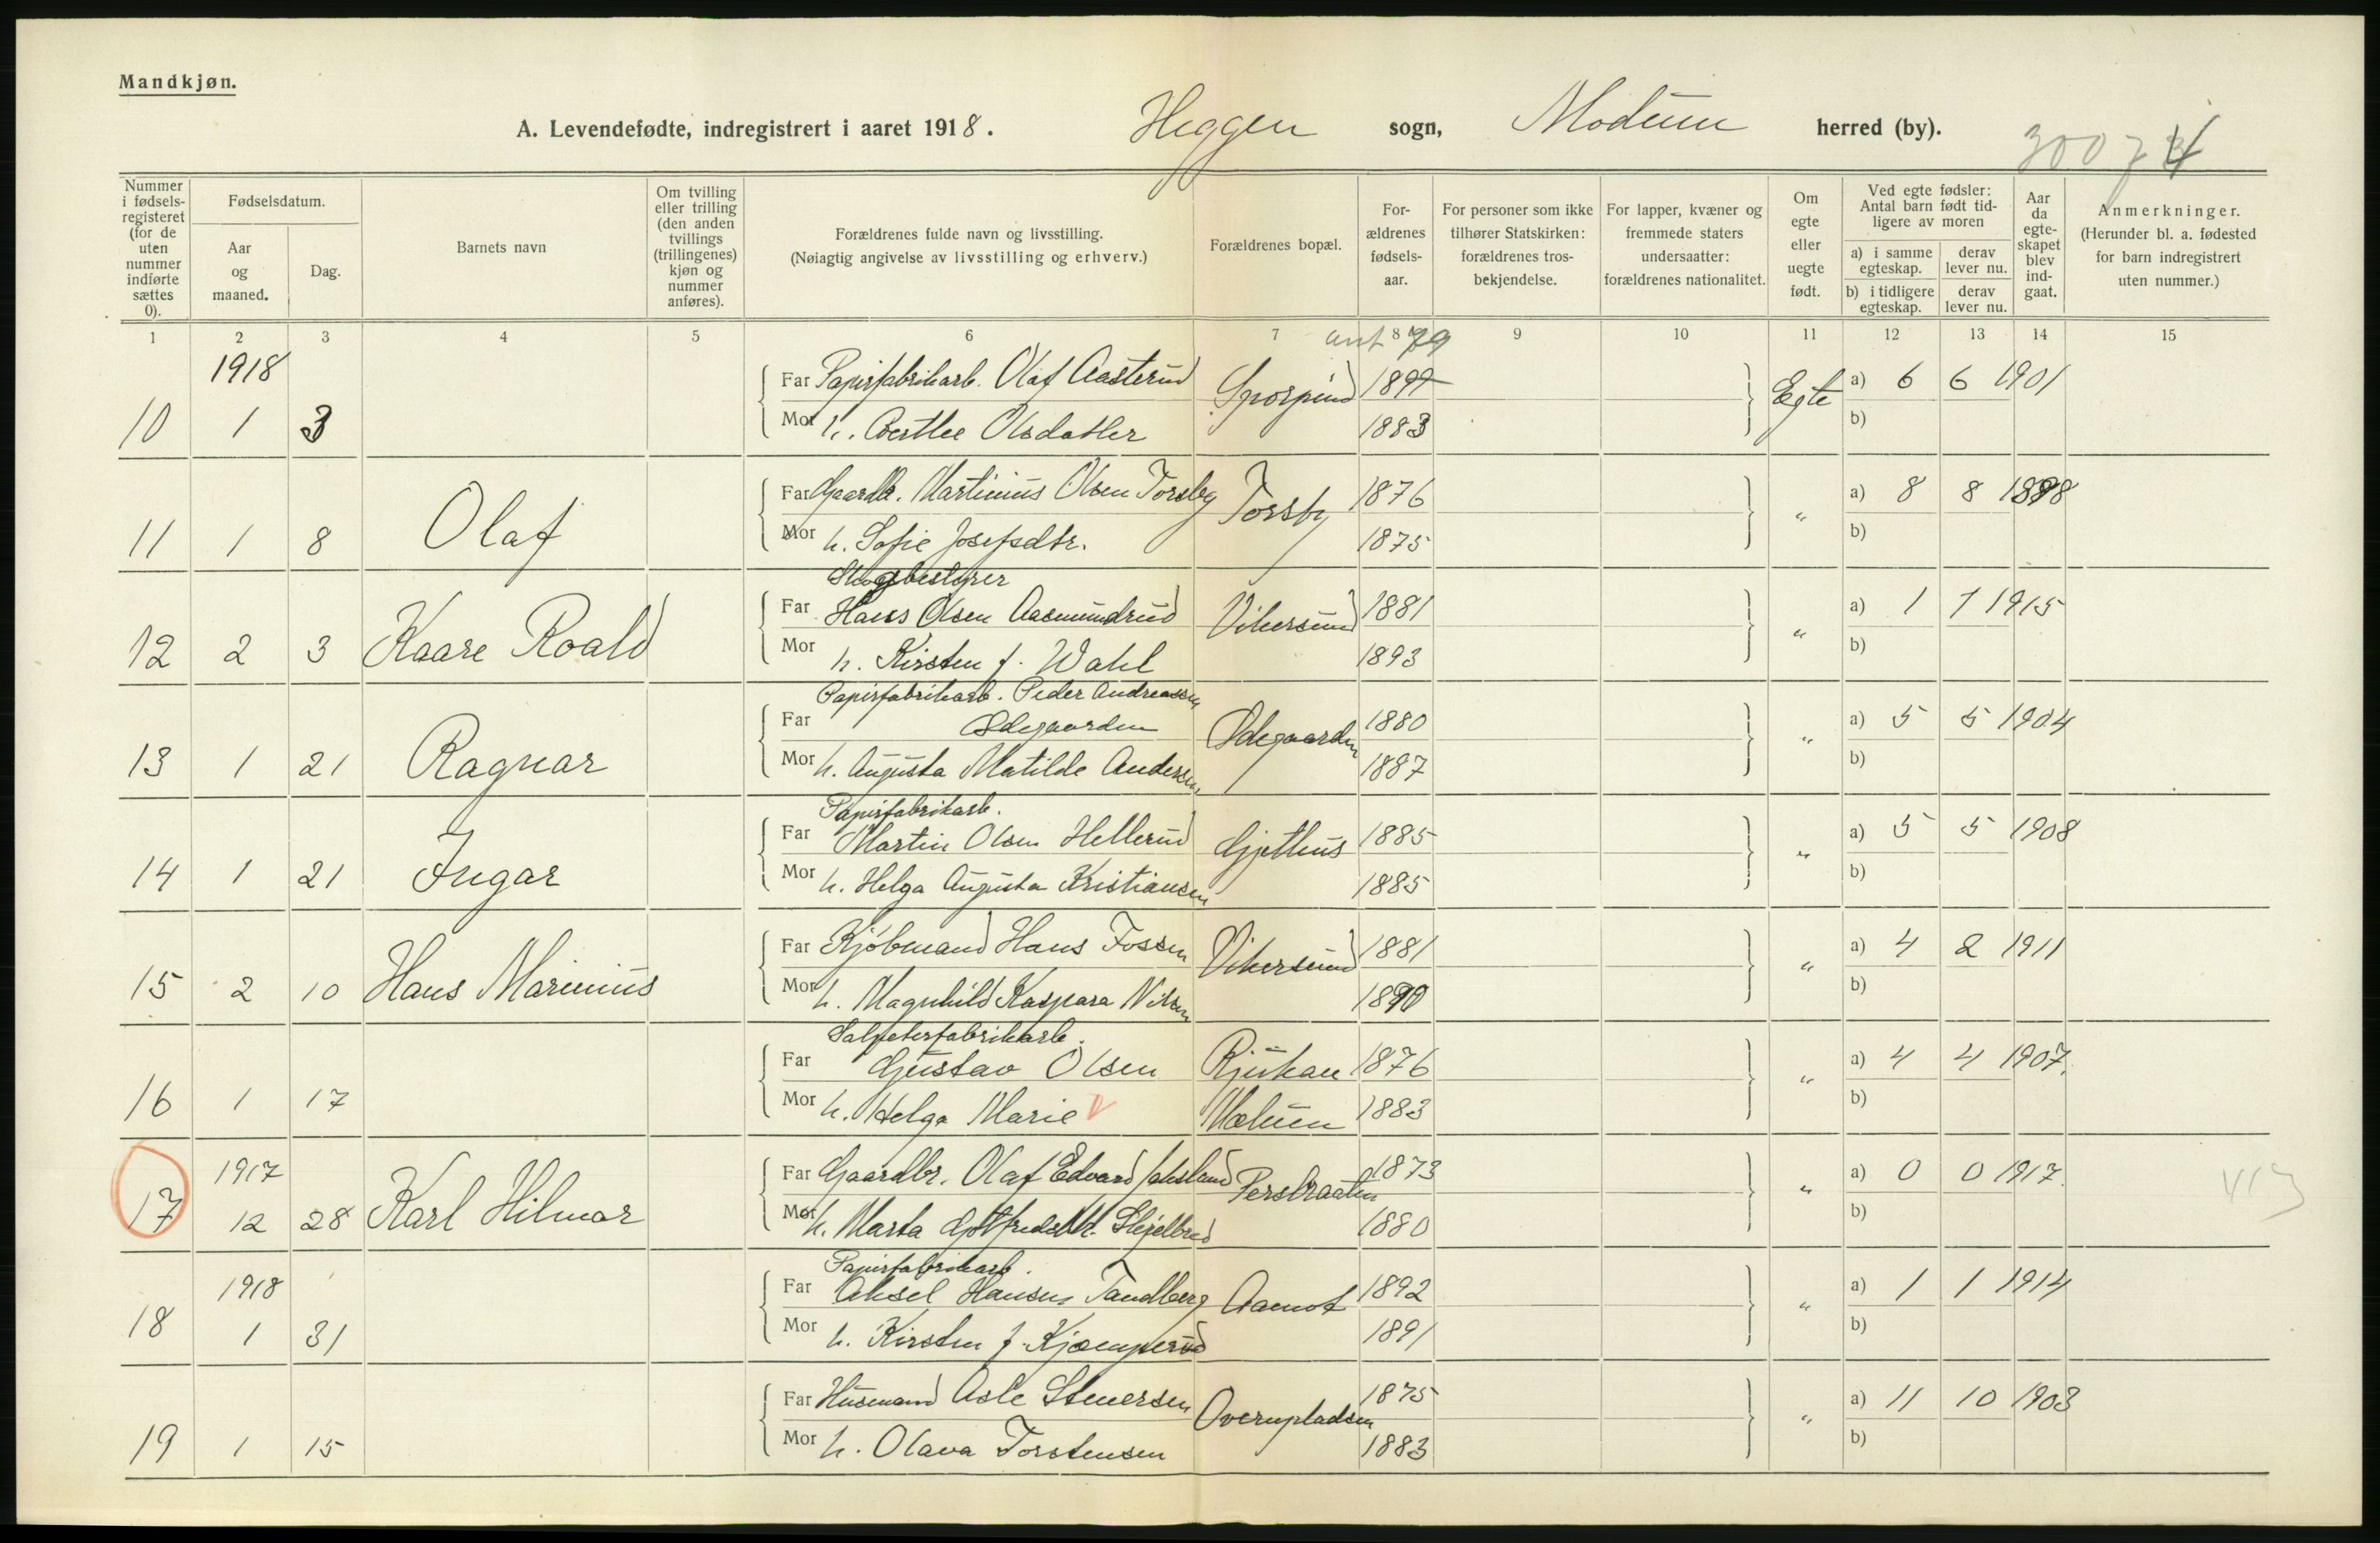 Mandkjøn.
A. Levendefødte, indregistrert i aaret 1918. Heggen sogn, Modum herred (by).
Nummer i fødselsregisteret (for de uten nummer indførte sættes 0).
Fødselsdatum.
Aar og maaned.
Dag.
Barnets navn
Om tvilling eller trilling (den anden tvillings (trillingenes) kjøn og nummer anføres).
Forældrenes fulde navn og livsstilling.
(Nøiagtig angivelse av livsstilling og erhverv.)
Forældrenes bopæl.
Forældrenes fødselsaar.
For personer som ikke tilhører Statskirken: forældrenes trosbekjendelse.
For lapper, kvæner og fremmede staters undersaatter: forældrenes nationalitet.
Om egte eller uegte født.
Ved egte fødsler: Antal barn født tidligere av moren
a) i samme egteskap.
derav lever nu.
b) i tidligere egteskap.
derav lever nu.
Aar da egteskapet blev indgaat.
Anmerkninger.
(Herunder bl. a. fødested for barn indregistrert uten nummer.)
1 2 3 4 5 6 7 8 9 10 11 12 13 14 15
ant 79
1918
Far Papirfabrikarb. Olaf Aasterud 1899 Egte a) 6 6 1901
10 1 3 Mor h. Berthe Olsdatter 1883 b)
Far Gaardbr. Martinius Olsen Torsby Torsby 1876 " a) 8 8 1898
11 1 8 Olaf Mor h. Sofie Josefsdtr. 1875 b)
Skogsbestyrer
Far Hans Olsen Aasmundrud Vikersund 1881 " a) 1 1 1915
12 2 3 Kaare Roald Mor h. Kirsten f. Wahl 1893 b)
Papirfabrikarb. Peder Andreassen
Far Ødegaarden Ødegaarden 1880 " a) 5 5 1904
13 1 21 Ragnar Mor h. Augusta Matilde Andersen 1887 b)
Papirfabrikarb.
Far Martin Olsen Hellerud Gjethus 1885 " a) 5 5 1908
14 1 21 Ingar Mor h. Helga Augusta Kristiansen 1885 b)
Far Kjøbmand Hans Fossen Vikersund 1881 " a) 4 2 1911
15 2 10 Hans Marinius Mor h. Magnhild Kaspara Nilsen 1890 b)
Salpeterfabrikarb.
Far Gustav Olsen Rjukan 1876 " a) 4 4 1907.
16 1 17 Mor h. Helga Marie Modum 1883 b)
1917
Far Gaardbr. Olaf Edvard Perbraaten 1873 " a) 0 0 1917.
17 12 28 Karl Hilmar Mor h. Marta Gotfredsdtr. 1880 b)
413
1918
Papirfabrikarb.
Far Aksel Hansen Tandberg Aamot 1892 " a) 1 1 1914
18 1 31 Mor h. Kirsten f. Kjæmperud 1891 b)
Far Husmand Asle Stenersen Overnpladsen 1875 " a) 11 10 1903
19 1 15 Mor h. Olava Torstensen 1883 b)